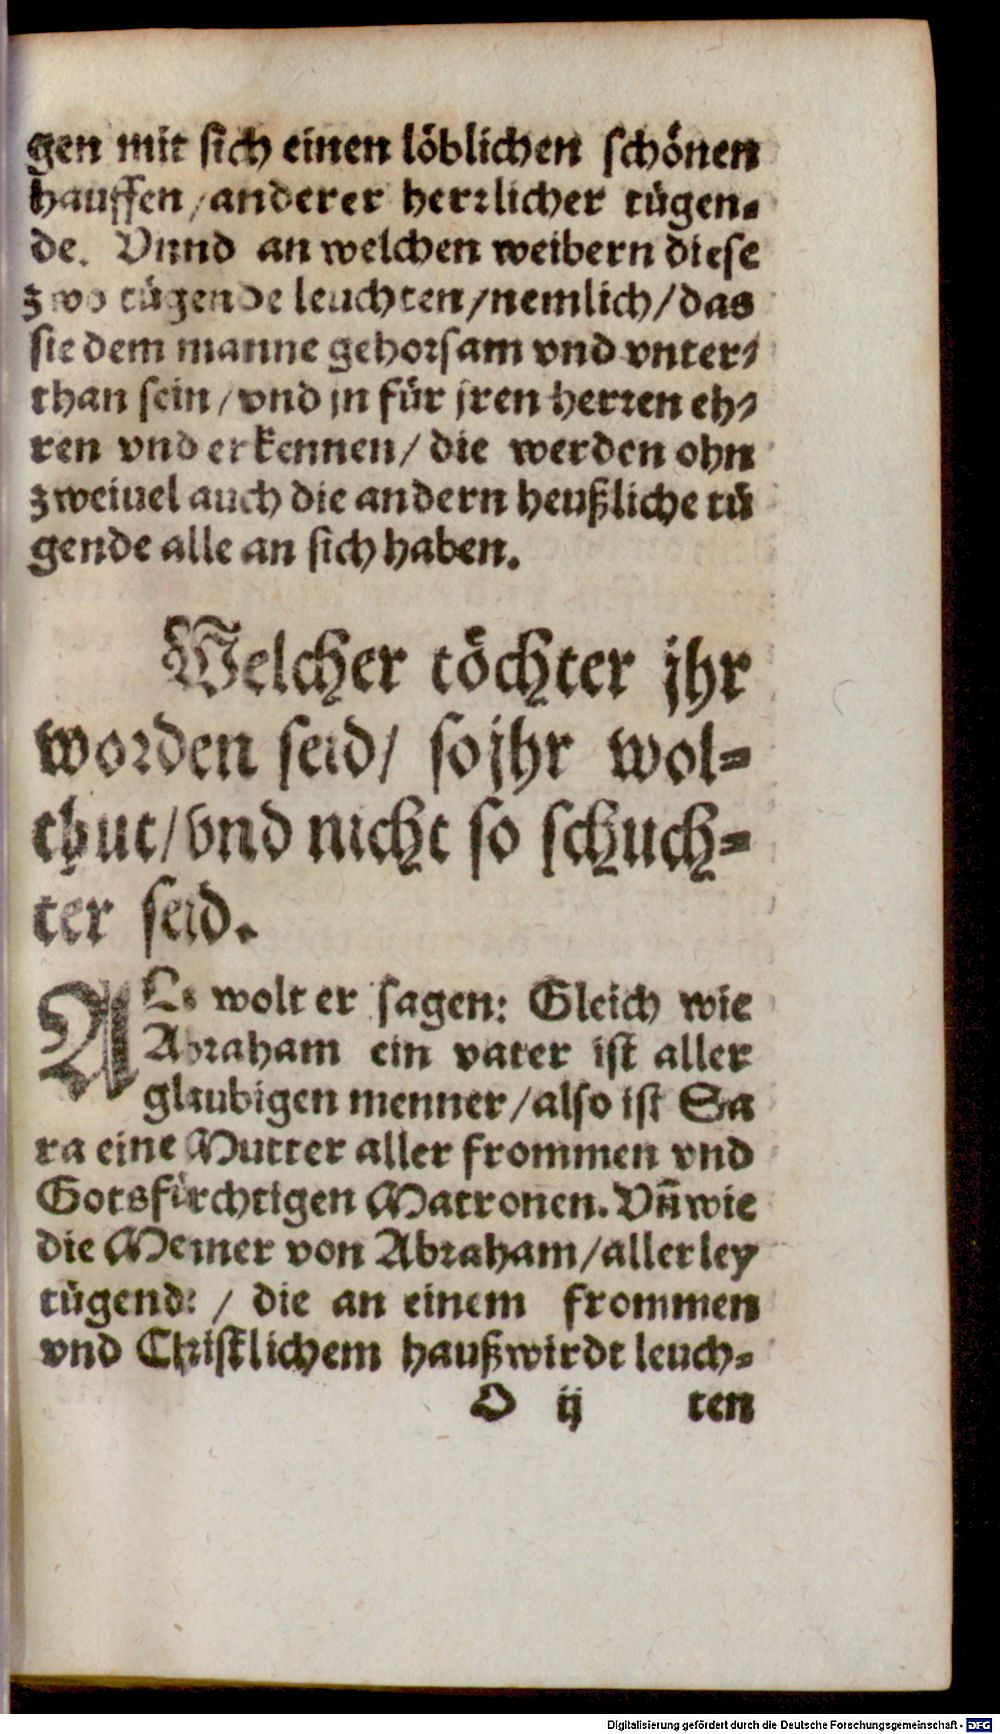 gen mit sich einen löblichen schönen
hauffen / anderer herrlicher tügen-
de. Vnnd an welchen weibern diese
zwo tügende leuchten / nemlich / das
sie dem manne gehorsam vnd vnter-
than sein / vnd jn für jren herren eh-
ren vnd erkennen / die werden ohn
zweiuel auch die andern heußliche tü
gende alle an sich haben.
Welcher töchter jhr
worden seid / so jhr wol-
thut / vnd nicht so schuch-
ter seid.
Als wolt er sagen: Gleich wie
Abraham ein vater ist aller
glaubigen menner / also ist Sa
ra eine Mutter aller frommen vnd
Gotsfürchtigen Matronen. Vn̄ wie
die Menner von Abraham / allerley
tügende / die an einem frommen
vnd Christlichem haußwirdt leuch-
O ij ten
Digitalisierung gefördert durch die Deutsche Forschungsgemeinschaft - DFG